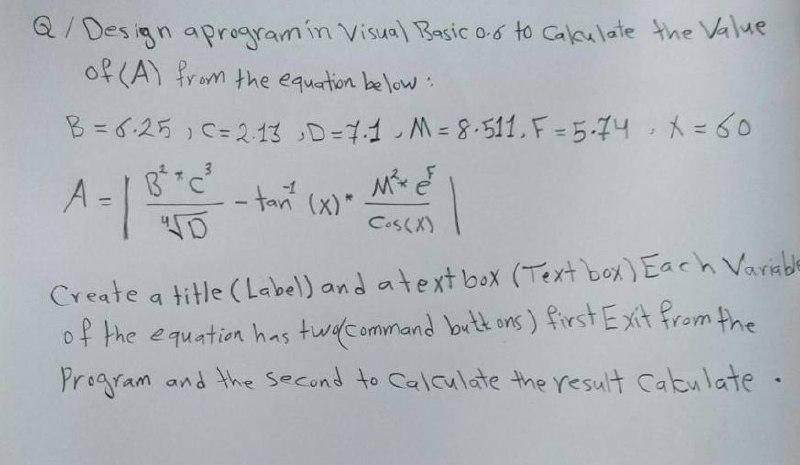 Q / Design aprogram in Visual Basic 0.6 to Calculate the Value
of (A) from the equation below :
B = 6.25 , C = 2.13 , D = 7.1 , M = 8.511 , F = 5.74 , X = 60
A = | B² * C³ / ∜D - tan⁻¹ (x) * M² * e^F / Cos(X) |
Create a title (Label) and a text box (Text box) Each Variable
of the equation has two (command buttons) first Exit from the
Program and the second to Calculate the result Calculate .